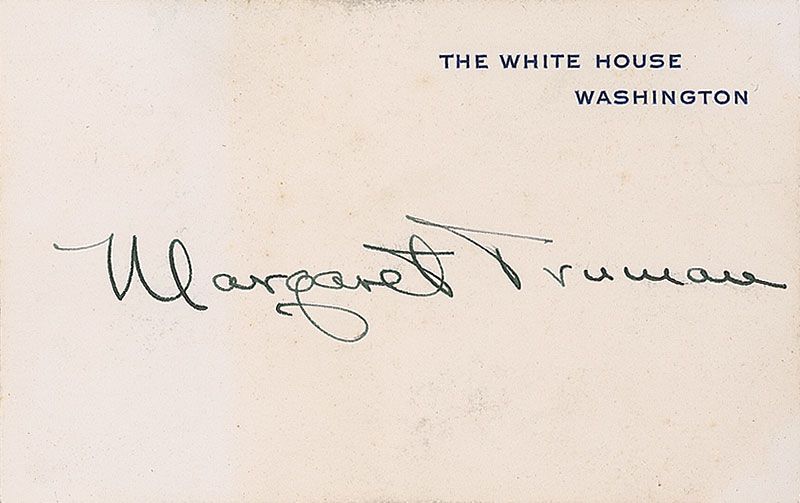 THE WHITE HOUSE
WASHINGTON
Margaret Truman